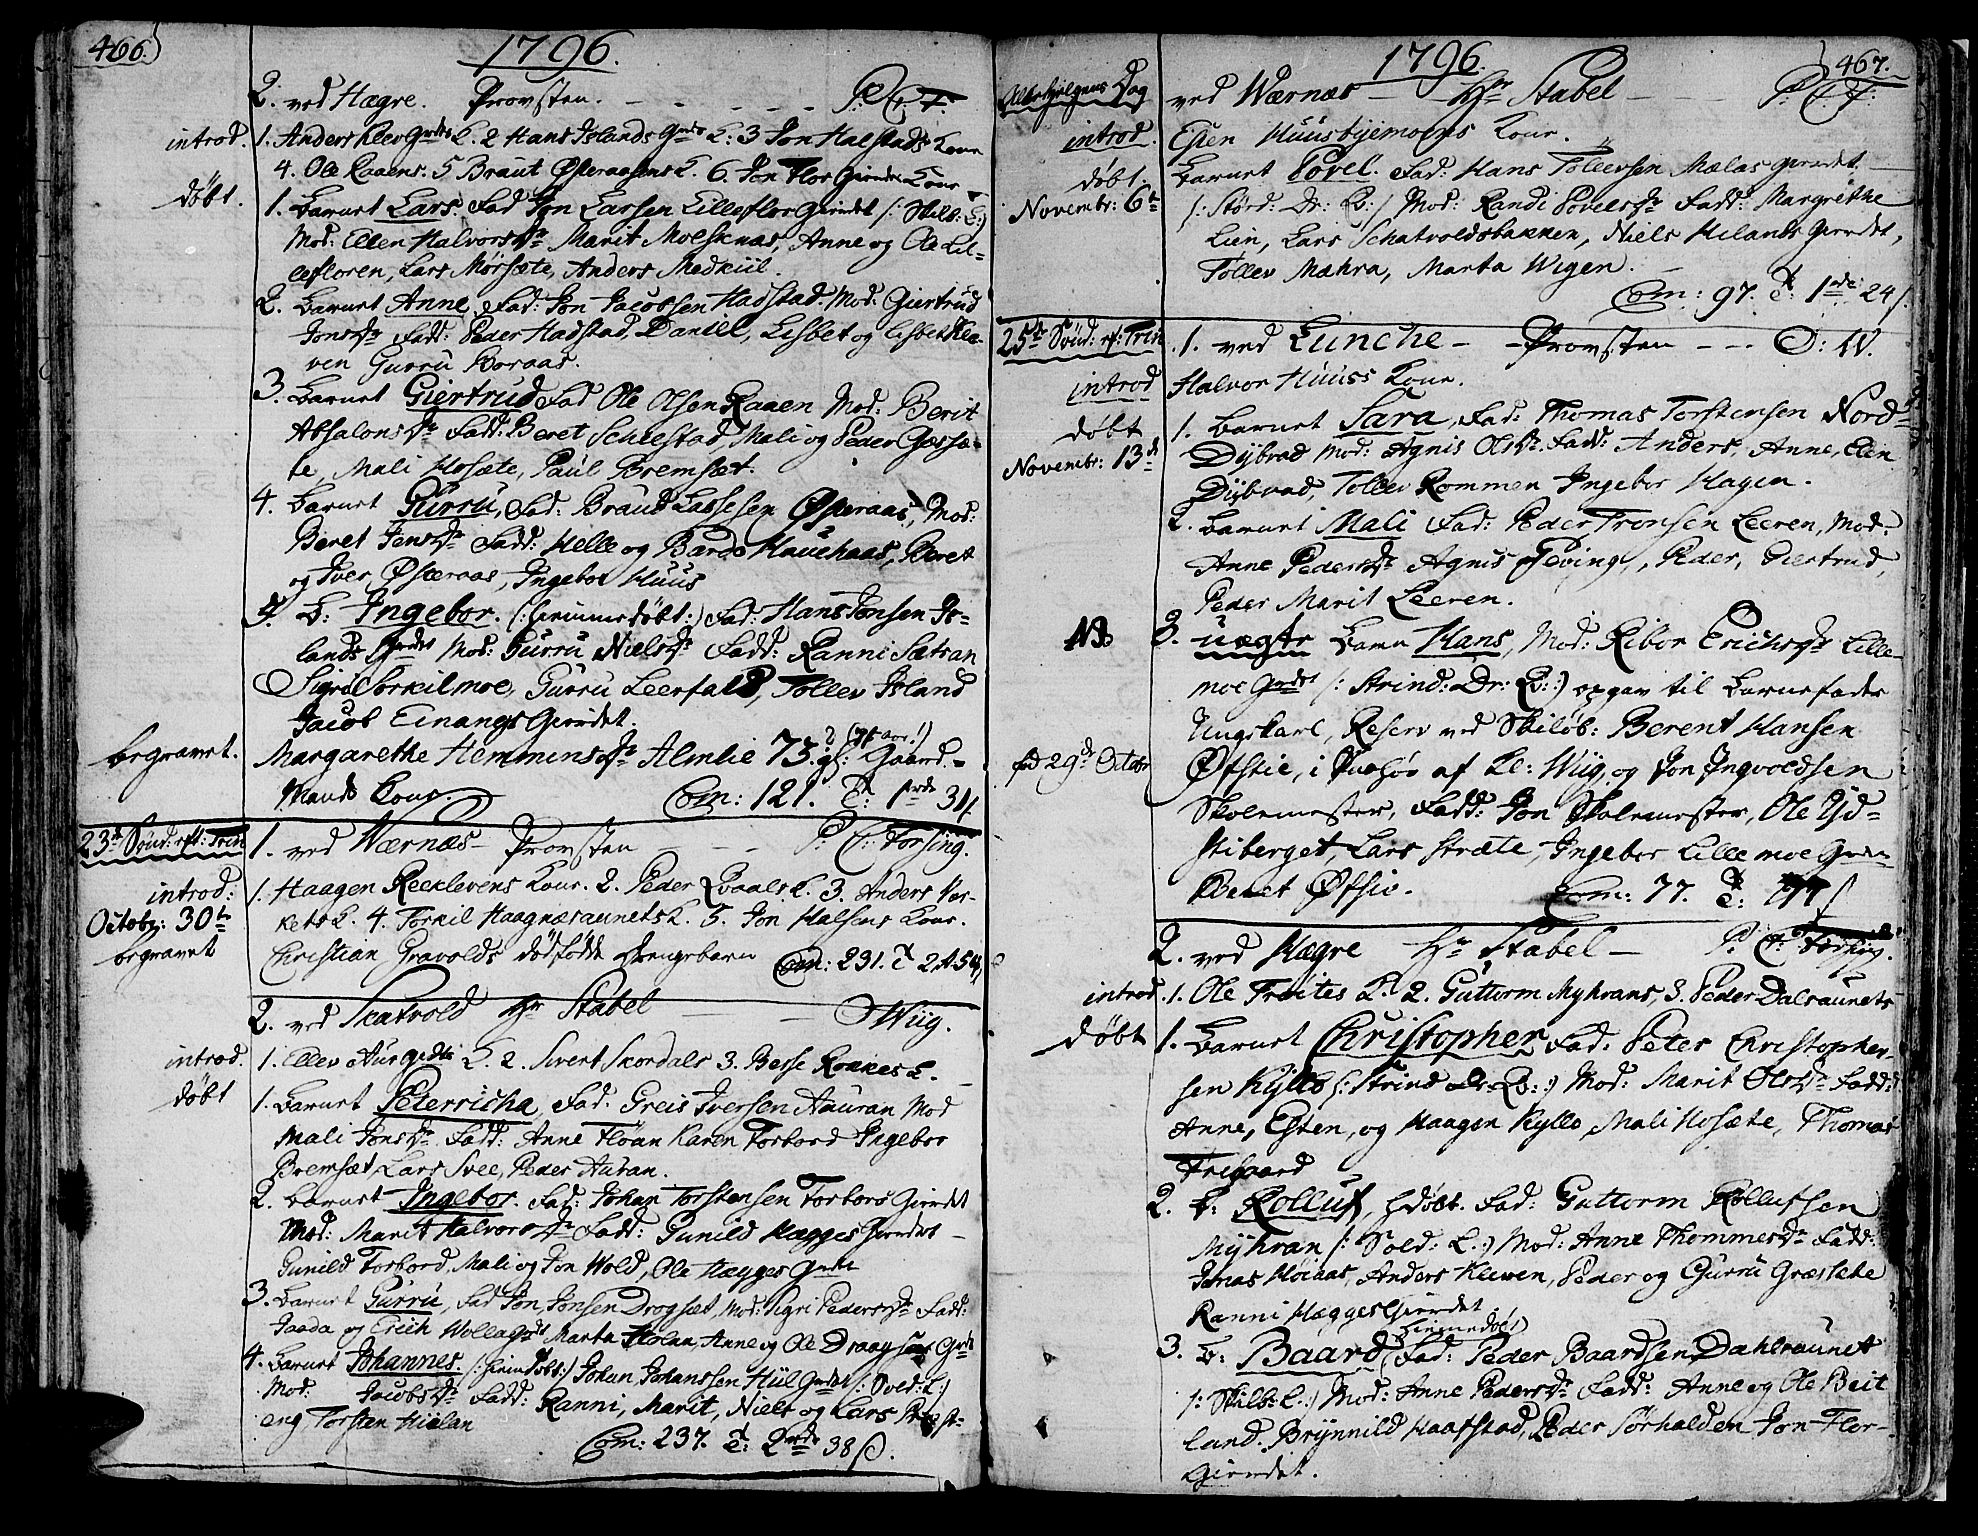 466.
1796.
2. ved Hægre. Provsten. P: C: F.
introd. 1. Anders Klev Grdts K. 2 Hans Islands Grds K: 3 Jon Halstads Kone
4. Ole Raaens. 5 Braut Øsperaasens K. 6. Jon Flor Gierdets Kone
døbt. 1. Barnet Lars. Fad Jon Larsen Lilleflor Gierdet /: Skilb: L:/
Mod: Ellen Halvorsdr Marit Molsknæs, Anne og Ole Lil-
lefloren, Lars Mørsæte, Anders Medkiil.
2. Barnet Anne, Fad: Jon Jacobsen Hadstad. Mod: Giertrud
Jonsdr Fadd: Peder Hadstad, Daniel, Lisbet og Lisbet Kle-
ven Gurru Boraas.
3. Barnet Giertrud Fad Ole Olsen Raaen Mod: Berit
Absalonsdr Fadd: Beret Schiestad, Mali og Peder Gæssæ-
te, Mali Hosæte, Paul Bremsæt.
4. Barnet Gurru, Fad: Braut Lassesen Øsperaas, Mod:
Beret Jensdr Fadd: Helle og Bardo Hauehaas, Beret
og Iver Øsperaas, Ingebor Huus
5. B: Ingebor. (: hiemmedøbt :) Fad: Hans Jonsen Is-
lands Gierdet Mod: Gurru Nielsdr Fadd: Ranni Sætran
Sigri Torkilmoe, Gurru Leerfald, Tollev Island
Jacob Einangs Gierdet.
begravet. Margarethe Hemmingsdr Almlie 73 (75 aar!) gl: Gaard-
Mands Kone. Com: 121. T: 1 rdr 31 /.
23de Sønd: eft: Trin 1. ved Wærnæs Provsten P. C: Forsing.
introd: 1. Haagen Reeklevens Kone. 2. Peder Qvaals K. 3. Anders Vær-
Octobr: 30te kets K. 4. Torkil Haagnæsaunets K. 5. Jon Halsens Kone.
begravet Christian Gravolds dødfødde Drengebarn Com: 231. T 2
2. ved Skatvold Hr Stabel Wiig.
introd. 1. Ellev Aurgrdts K. 2. Sivert Skordals 3. Besse Roknes K.
døbt 1. Barnet Peterricha, Fad. Greis Iversen Auran Mod
Mali Jonsdr Fadd: Anne Floan Karen Forbord Ingebor
Bremsæt, Lars Svee, Peder Auran.
2. Barnet Ingebor. Fad: Johan Torstensen Forbors Gierdet
Mod: Marit Halvorsdr Fadd: Gunild Hægges Gierdet
Gunild Forbord, Mali og Jon Wold, Ole Hægges Grdt
3. Barnet Gurru, Fad Jon Jonsen Drogsæt, Mod: Sigri Pedersdr Fadd:
og Erich Wolla Grdt Marta Holan, Anne og Ole Draagsæt Grdt
4. Barnet Johannes. /: hiemdøbt :/ Johan Johansen Hiil Grdet /: Sold: L :/
Mod: Jacobsdr Fadd: Ranni, Marit, Niels og Lars
eng Torsten Hielan
Com: 237. T: 2 rdr 38 ß.
467.
1796
Allehelgens Dag ved Wærnæs Hr Stabel P: C F:
introd. Esten Huusbyemoens Kone.
døbt. Barnet Povel. Fad: Hans Tollevsen Mælas Gierdet
Novembr: 6te /: Størd: Dr: Q: / Mod: Randi Povelsdr Fadd: Margrethe
Lien, Lars Schatvoldsbakken, Niels Hilands Gierdet,
Tollev Mæhra, Marta Wigen.
Com: 97. T: 1 rdr 24 /:
25de Sønd: eft: Trin 1. ved Lunche Provsten O: W.
introd Halvor Huuss Kone.
døbt 1. Barnet Sara, Fad: Thomas Torstensen Nord-
Novembr: 13de Dybvad Mod: Agnis Olsdr. Fadd: Anders, Anne, Elen
Dybvad, Tollev Rommen Ingebor Hagen.
2. Barnet Mali Fad: Peder Tronsen Leeren, Mod:
Anne Pedersdr Agnis Peving, Peder, Giertrud,
Peder Marit Leeren.
3. uægte Barn Hans, Mod: Ribor Erichsdr Lille-
moe Grdet /: Strind: Dr: Q: :/ opgav til Barnefader
Ungekarl, Reserv ved Skiløb: Berent Hansen
fød 29de Octobr Øfstie, i Paahør af Kl: Wiig, og Jon Ingvoldsen
Skolemester, Fadd: Jon Skolemester, Ole Yd-
stiberget, Lars Stræte, Ingebor Lillemoe Grdt
Beret Øfstie. Com: 77. T:
2. ved Hægre Hr Stabel P: C: Forsing.
introd. 1. Ole Froites K. 2. Guttorm Myhrans, 3. Peder Dalsaunets
døbt 1. Barnet Christopher, Fad: Peter Christopher-
sen Kyllo (: Strind Dr: Q: :) Mod: Marit Olsdr Fadd:
Anne, Esten, og Haagen Kyllo, Mali Hosæte, Thomas
Frigaard
2. B: Rolluf, hdøbt. Fad: Guttorm Rollufsen
Myhran /: Sold: L :/ Mod: Anne Thommesdr Fadd:
Jonas Høiaas, Anders Kleven, Peder og Gurru Græssæte
Ranni Hægges Gierdet
3. B: Baard (hiemmedøbt) Fad: Peder Baardsen Dahlsaunet
/: Skilb: L :/ Mod: Anne Pedersdr Fadd: Anne og Ole Beit
land. Brynnild Haafstad, Peder Sørhalden Jon Flor-
Gierdet.